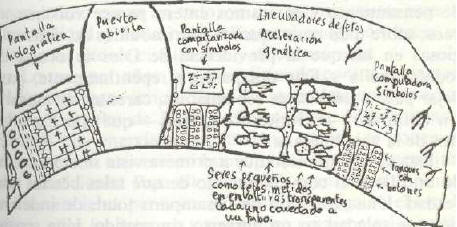 Pantalla
holográfica
Puerta
abierta
Pantalla
computarizada
con símbolos
Incubadores de fetos
Aceleración
genética
Pantalla
computadora
símbolos
Tanques
con
botones
Seres pequeños
como fetos, metidos
en envolturas transparentes
Cada uno conectado a
un tubo.